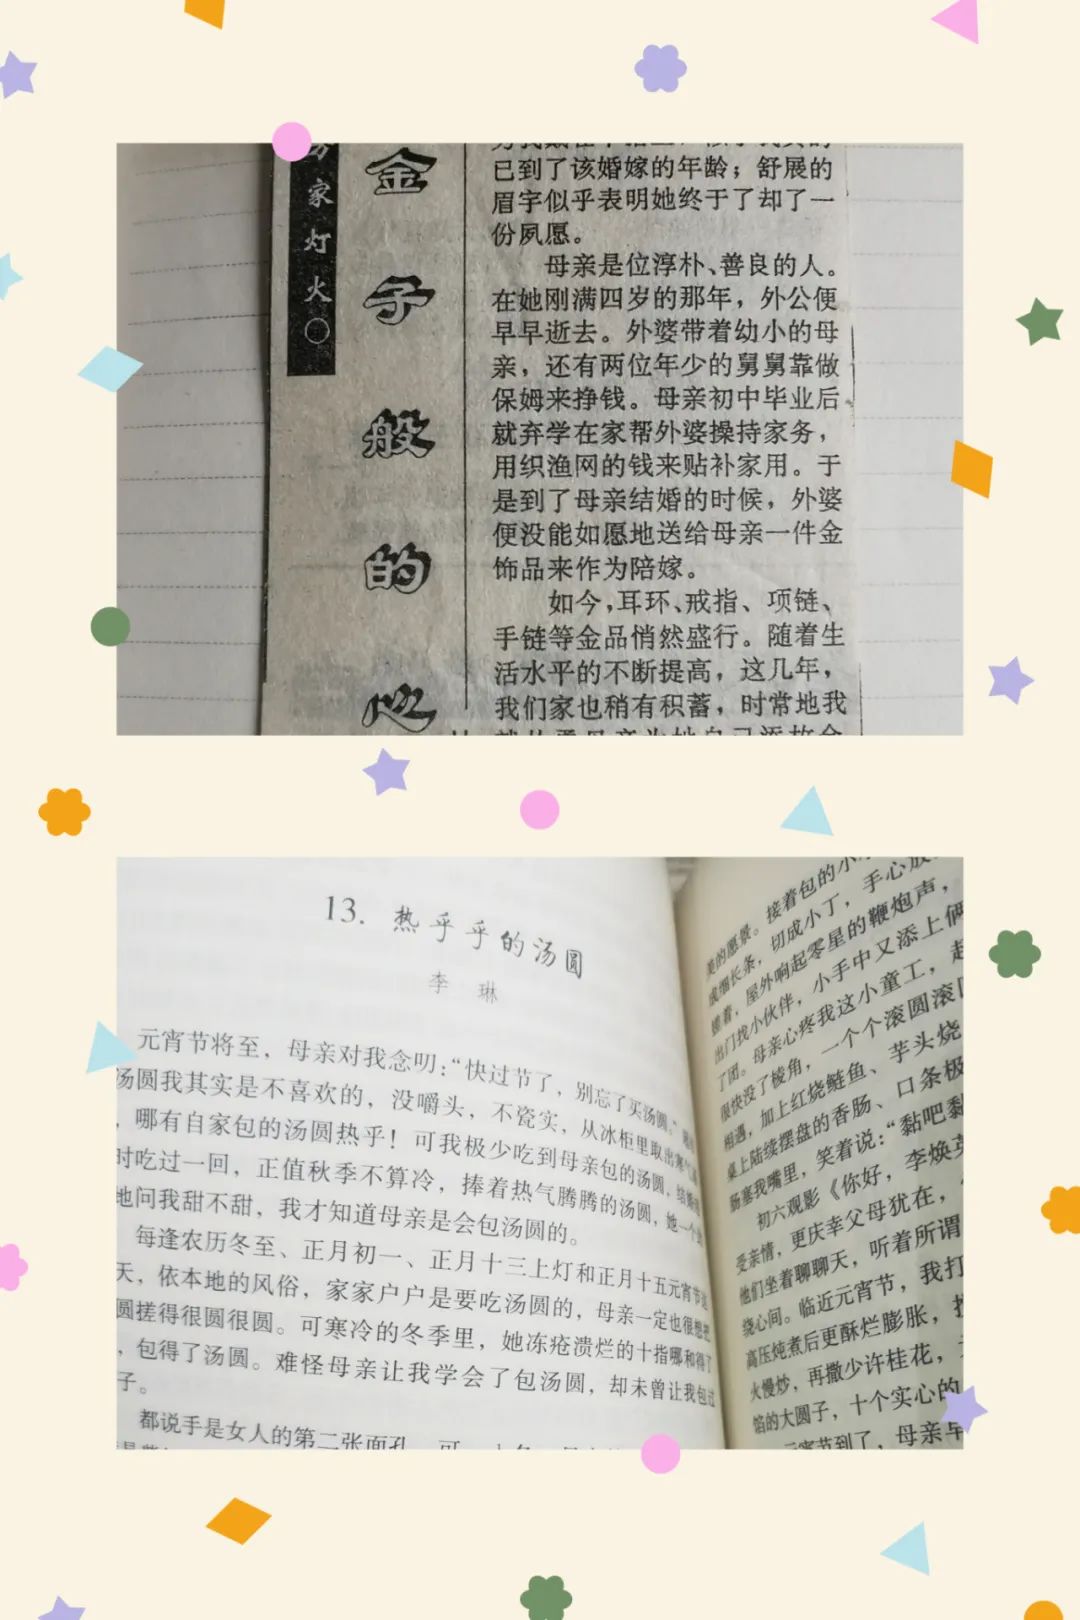 万家灯火○
金子般的心
已到了该婚嫁的年龄；舒展的
眉宇似乎表明她终于了却了一
份夙愿。
母亲是位淳朴、善良的人。
在她刚满四岁的那年，外公便
早早逝去。外婆带着幼小的母
亲，还有两位年少的舅舅靠做
保姆来挣钱。母亲初中毕业后
就弃学在家帮外婆操持家务，
用织渔网的钱来贴补家用。于
是到了母亲结婚的时候，外婆
便没能如愿地送给母亲一件金
饰品来作为陪嫁。
如今，耳环、戒指、项链、
手链等金品悄然盛行。随着生
活水平的不断提高，这几年，
我们家也稍有积蓄，时常地我
13. 热乎乎的汤圆
李 琳
元宵节将至，母亲对我念叨：“快过节了，别忘了买汤圆。”
汤圆我其实是不喜欢的，没嚼头，不瓷实，从冰柜里取出寒气
，哪有自家包的汤圆热乎！可我极少吃到母亲包的汤圆，结婚
时吃过一回，正值秋季不算冷，捧着热气腾腾的汤圆，她一个
地问我甜不甜，我才知道母亲是会包汤圆的。
每逢农历冬至、正月初一、正月十三上灯和正月十五元宵节
天，依本地的风俗，家家户户是要吃汤圆的，母亲一定也很想把
圆搓得很圆很圆。可寒冷的冬季里，她冻疮溃烂的十指哪和得了
，包得了汤圆。难怪母亲让我学会了包汤圆，却未曾让我包过
子。
都说手是女人的第二张面孔
美的愿景。接着包的小
成细长条，切成小丁，手心放
着，屋外响起零星的鞭炮声，
出门找小伙伴，小手中又添上俩
了团。母亲心疼我这小童工，起
很快没了棱角，一个个滚圆滚
相遇，加上红烧鲢鱼、芋头烧
桌上陆续摆盘的香肠、口条极
肠塞我嘴里，笑着说：“黏吧黏
初六观影《你好，李焕英
受亲情，更庆幸父母犹在，
他们坐着聊聊天，听着所谓
绕心间。临近元宵节，我打
高压炖煮后更酥烂膨胀，
火慢炒，再撒少许桂花，
馅的大圆子，十个实心的
元宵节到了，母亲早